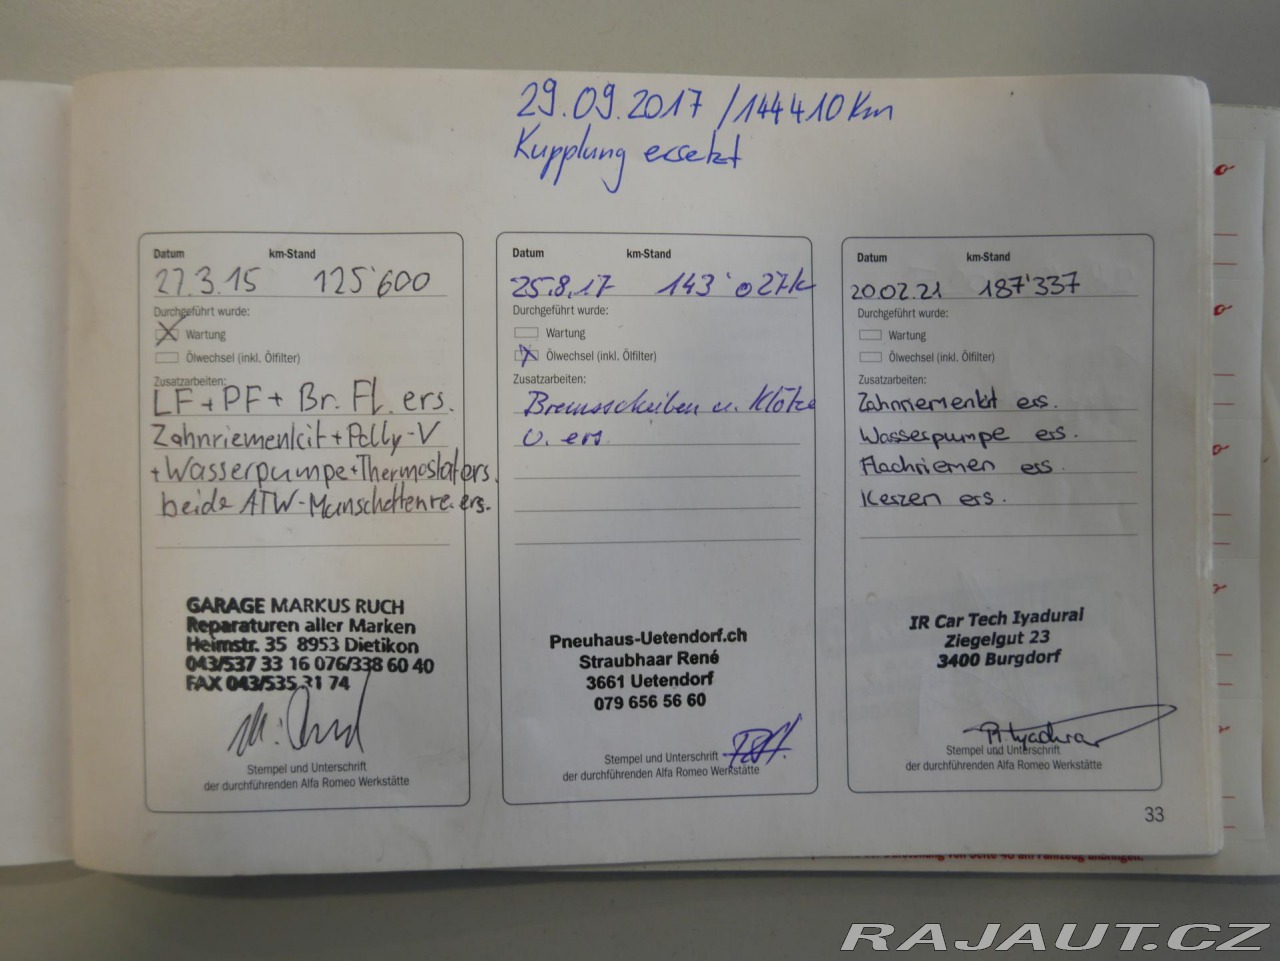 29.09.2017 / 144410 Km
Kupplung ersetzt
Datum km-Stand
27.3.15 125'600
Durchgeführt wurde:
Wartung
Ölwechsel (inkl. Ölfilter)
Zusatzarbeiten:
LF + PF + Br. Fl. ers.
Zahnriemenkit + Polly-V
+ Wasserpumpe + Thermostat ers.
beide ATW-Manschetten re. ers.
GARAGE MARKUS RUCH
Reparaturen aller Marken
Heimstr. 35 8953 Dietikon
043/537 33 16 076/338 60 40
FAX 043/535 31 74
Stempel und Unterschrift
der durchführenden Alfa Romeo Werkstätte
Datum km-Stand
25.8.17 143'027k
Durchgeführt wurde:
Wartung
Ölwechsel (inkl. Ölfilter)
Zusatzarbeiten:
Bremsscheiben u. Klötze
v. ers
Pneuhaus-Uetendorf.ch
Straubhaar René
3661 Uetendorf
079 656 56 60
Stempel und Unterschrift
der durchführenden Alfa Romeo Werkstätte
Datum km-Stand
20.02.21 187'337
Durchgeführt wurde:
Wartung
Ölwechsel (inkl. Ölfilter)
Zusatzarbeiten:
Zahnriemenkit ers.
Wasserpumpe ers.
Flachriemen ers.
Kerzen ers.
IR Car Tech Iyadurai
Ziegelgut 23
3400 Burgdorf
Stempel und Unterschrift
der durchführenden Alfa Romeo Werkstätte
33
von Seite 40 am Fahrzeug anbringen.
RAJAUT.CZ